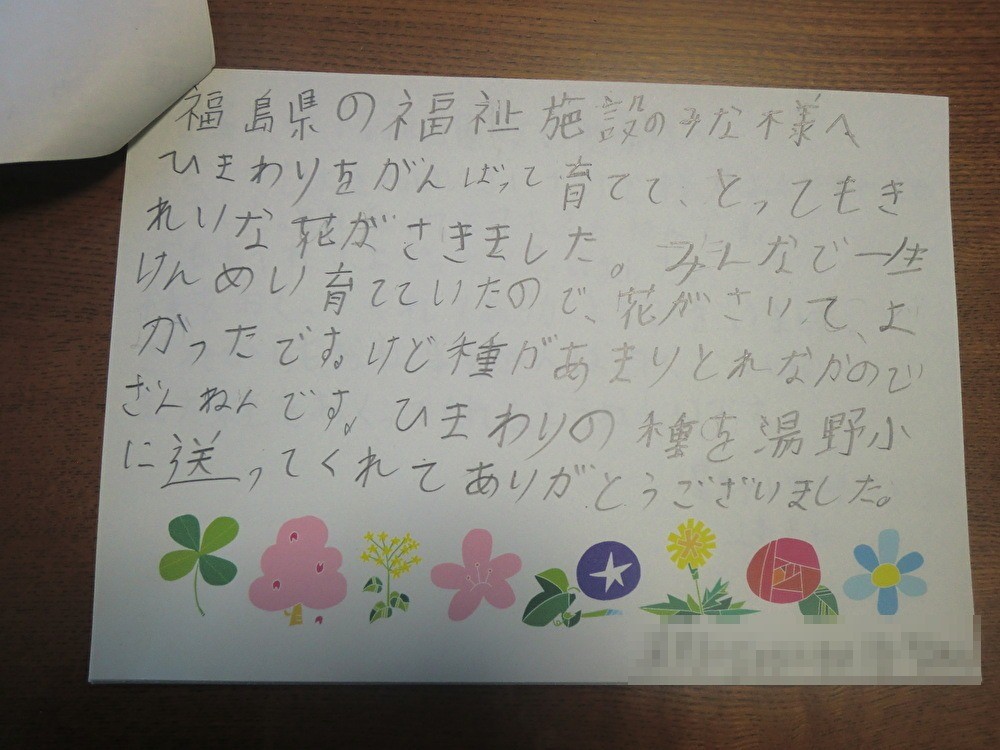 福島県の福祉施設のみな様へ
ひまわりをがんばって育てて、とってもき
れいな花がさきました。みんなで一生
けんめい育てていたので、花がさいて、よ
かったです。けど種があまりとれなかので
ざんねんです。ひまわりの種を湯野小
に送ってくれてありがとうございました。